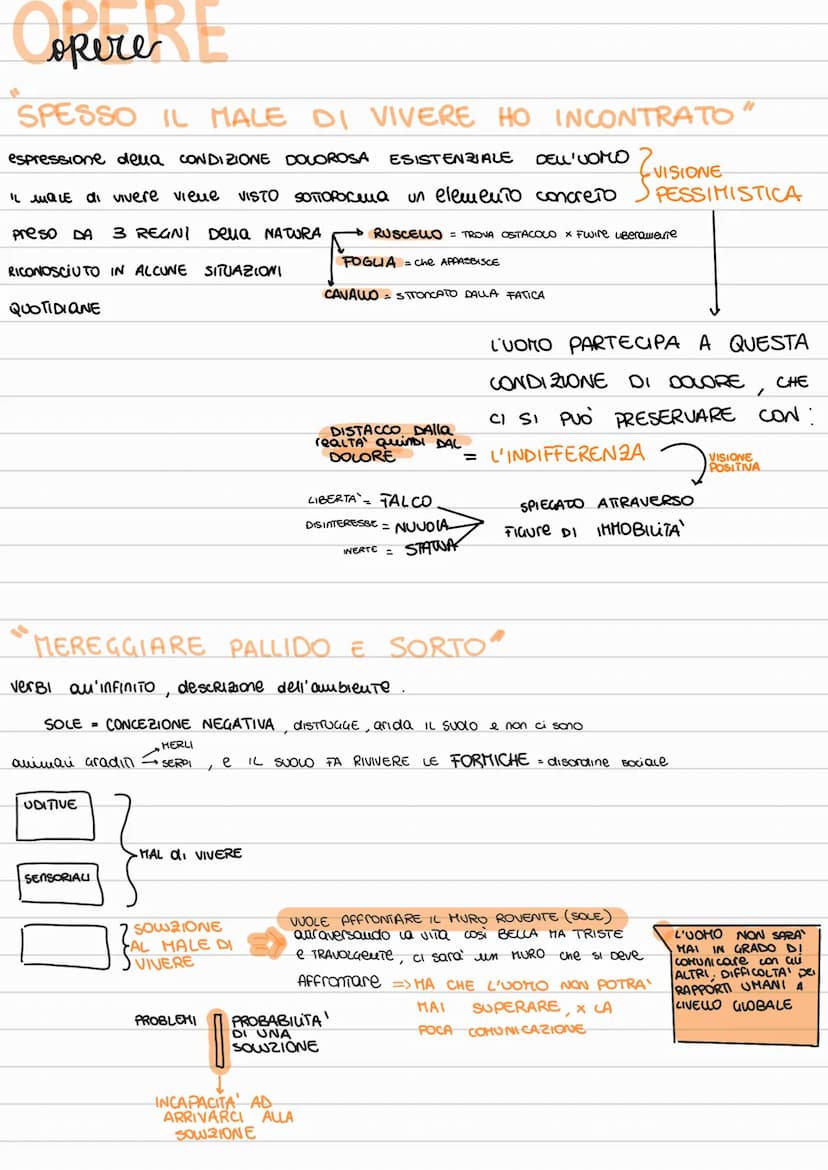 OPERE
opere
"SPESSO IL MALE DI VIVERE HO INCONTRATO"
espressione della CONDIZIONE DOLOROSA ESISTENZIALE DELL'UOMO
IL MALE di vivere viene VISTO SOTTOFORMA un elemento concreto
VISIONE
PESSIMISTICA
preso DA 3 REGNI Della NATURA
RICONOSCIUTO IN ALCUNE SITUAZIONI
QUOTIDIANE
RUSCELLO = TROVA OSTACOLO x FLUIRE LIBERAMENTE
FOGLIA = che APPASSISCE
CAVALLO = STRONCATO DALLA FATICA
L'UOMO PARTECIPA A QUESTA
CONDIZIONE DI DOLORE, CHE
CI SI PUÒ PRESERVARE CON:
DISTACCO DALLA
realTA' quindi DAL
DOLORE
= L'INDIFFERENZA
VISIONE
POSITIVA
LIBERTA' = FALCO
DISINTERESSE = NUVOLA
INERTE = STATUA
SPIEGATO ATTRAVERSO
FIGURE DI IMMOBILITA'
"MEREGGIARE PALLIDO E SORTO"
verBI all'INFINITO, descrizione dell'ambiente.
SOLE = CONCEZIONE NEGATIVA, DISTRUGGE, arida IL SUOLO e non ci sono
animali gradin MERLI
SERPI, e IL SUOLO FA RIVIVERE LE FORMICHE = disordine sociale
UDITIVE
SENSORIALI
MAL di VIVERE
SOLUZIONE
AL MALE DI
VIVERE
VUOLE AFFRONTARE IL MURO ROVENTE (SOLE)
attraversando la vita così BELLA MA TRISTE
e TRAVOLGENTE, ci sarà un MURO che si DEVE
Affrontare => MA CHE L'UOMO NON POTRA'
MAI SUPERARE, x LA
POCA COMUNICAZIONE
L'UOMO NON SARA'
MAI IN GRADO DI
comunicare con gli
ALTRI, DIFFICOLTA' dei
RAPPORTI UMANI A
LIVELLO GLOBALE
PROBLEMI
PROBABILITA'
DI UNA
SOLUZIONE
INCAPACITA' AD
ARRIVARCI ALLA
SOLUZIONE